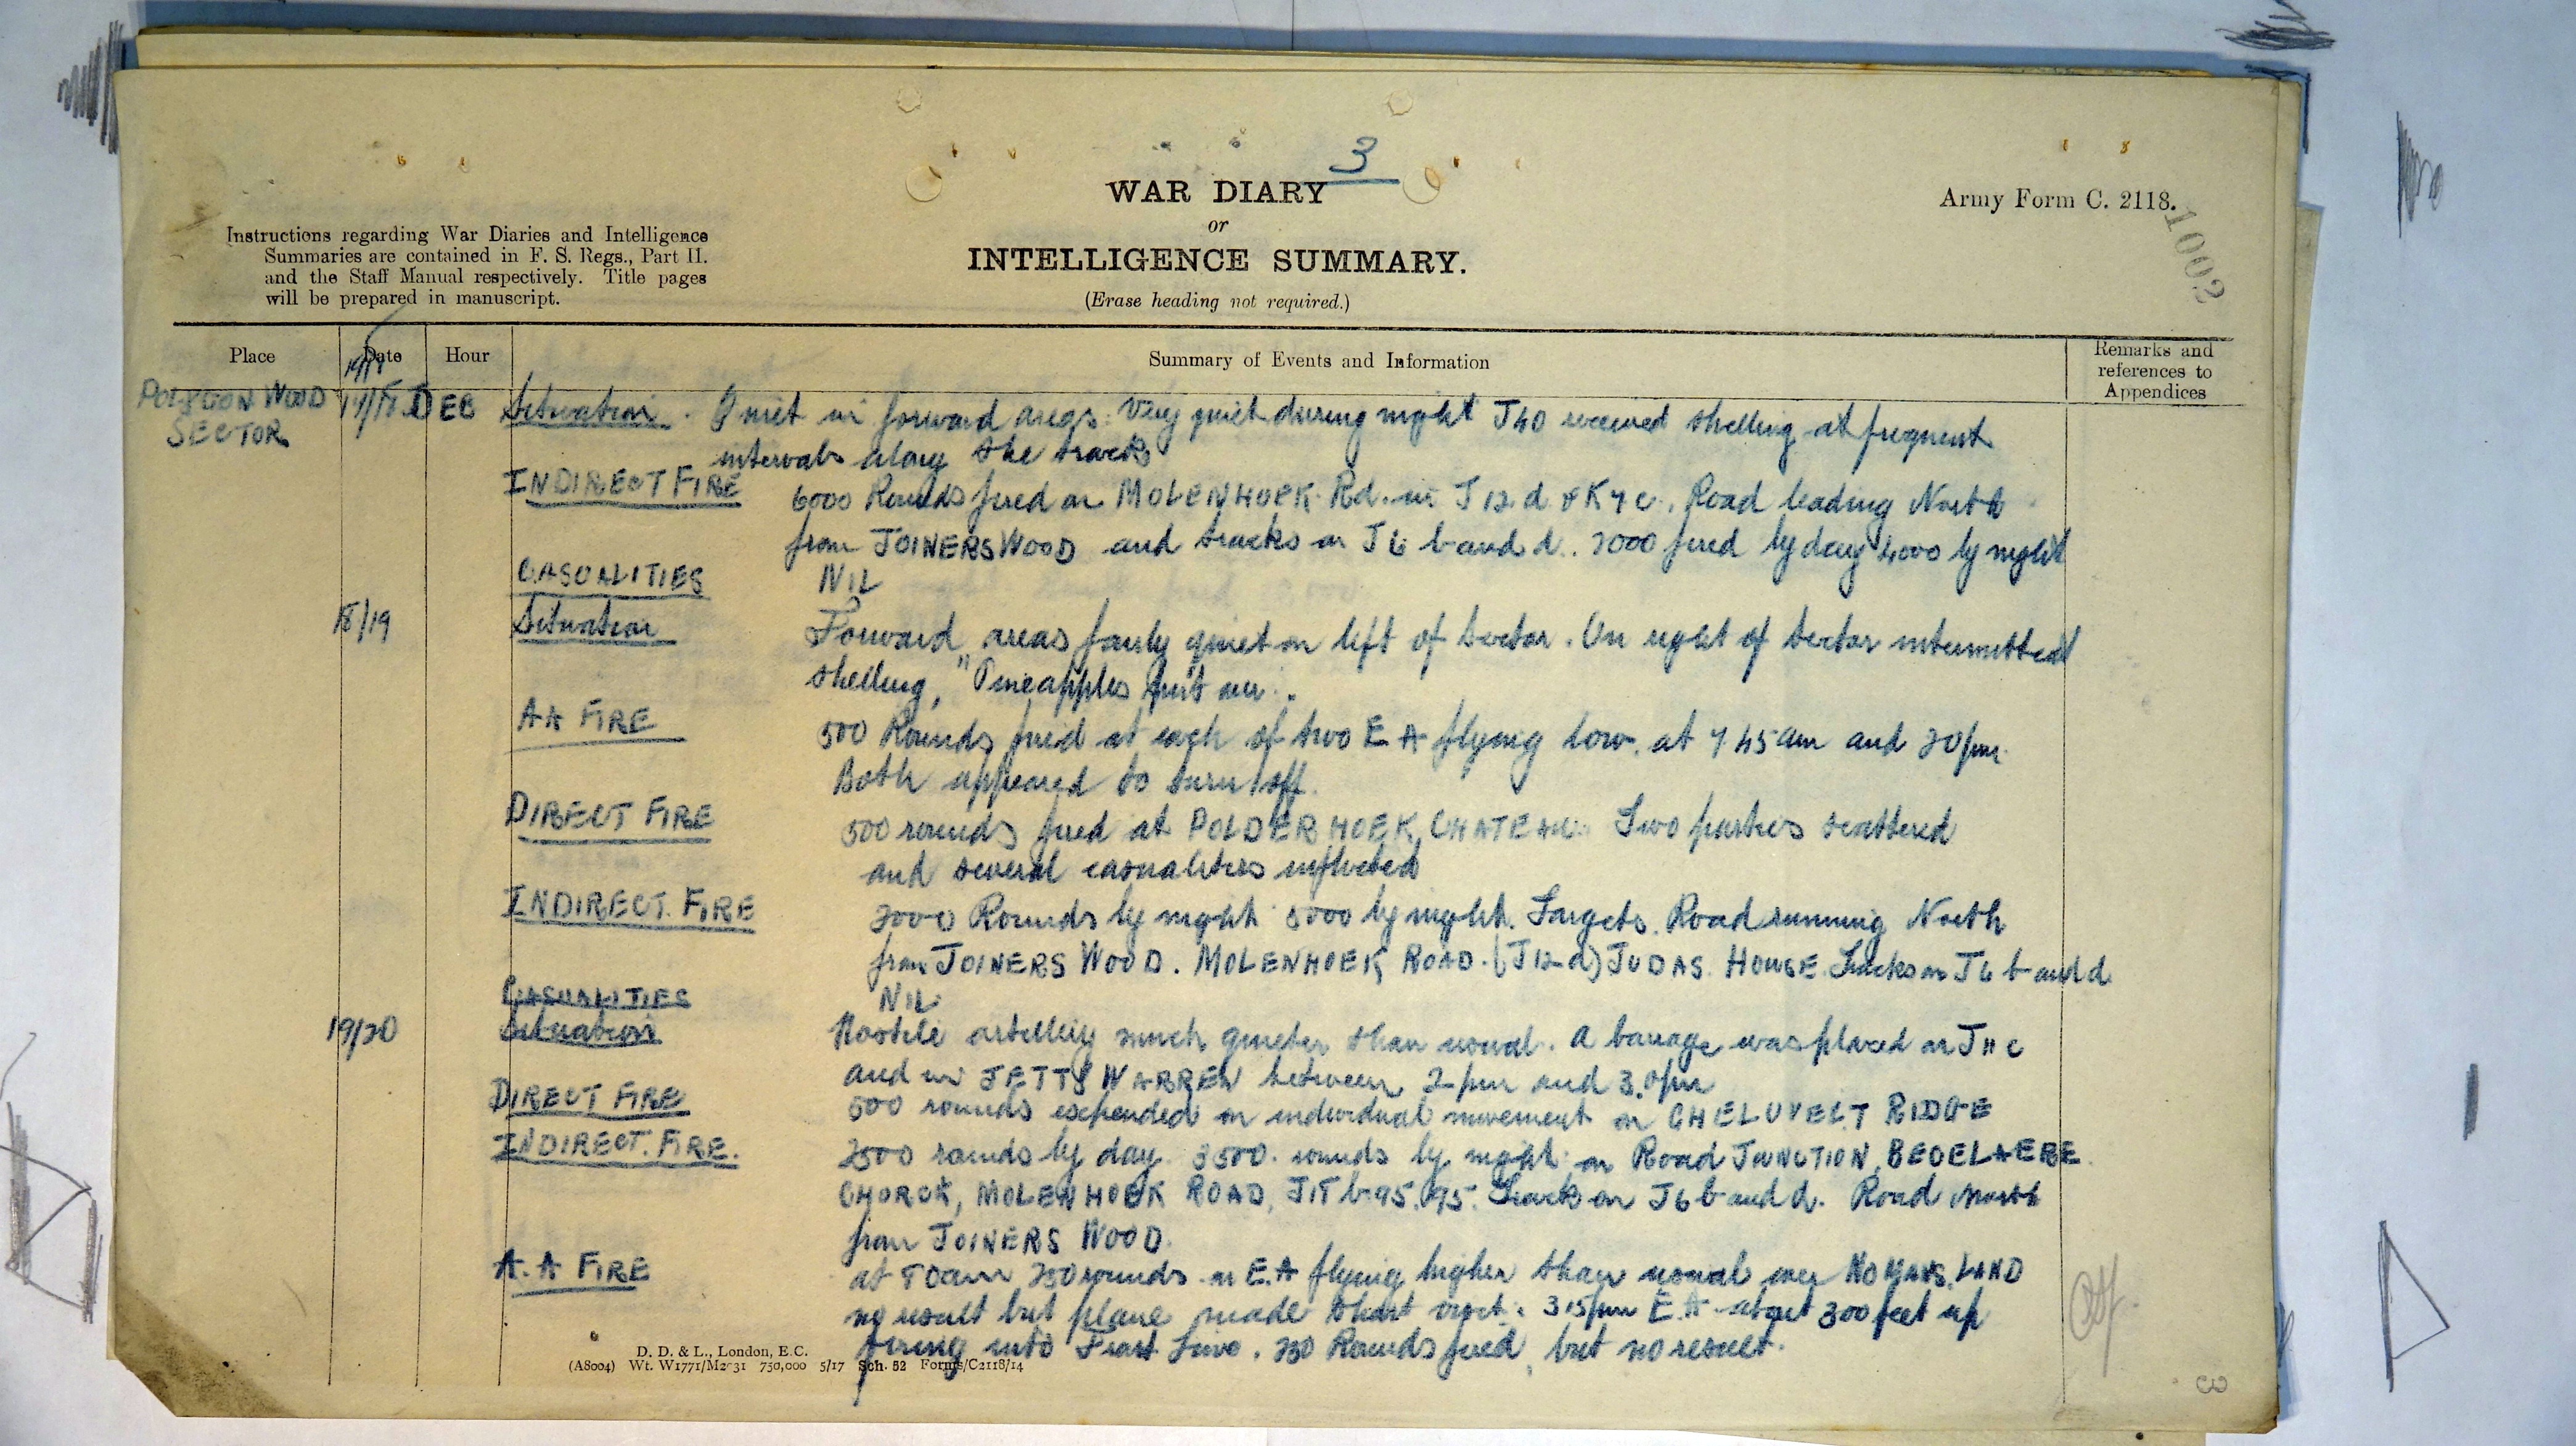 3
WAR DIARY
or
INTELLIGENCE SUMMARY.
(Erase heading not required.)
Army Form C. 2118.
1002
Instructions regarding War Diaries and Intelligence
Summaries are contained in F. S. Regs., Part II.
and the Staff Manual respectively. Title pages
will be prepared in manuscript.
Place Date Hour Summary of Events and Information Remarks and references to Appendices
POLYGON WOOD SECTOR 17/18 DEC Situation. Quiet in forward areas. Very quiet during night J40 received shelling at frequent
intervals along the tracks
INDIRECT FIRE 6000 Rounds fired on MOLENHOEK Rd. in J 12 d & K 7 c. Road leading North
from JOINERS WOOD and tracks in J 6 b and d. 2000 fired by day 4000 by night
CASUALITIES NIL
18/19 Situation Forward areas fairly quiet on left of sector. On right of sector intermittent
shelling, "Pineapples
AA FIRE 500 Rounds fired at each of two E A flying low. at 7 45 am and
Both appeared to turn off.
DIRECT FIRE 500 rounds fired at POLDERHOEK CHATEAU. Two parties scattered
and several casualities inflicted
INDIRECT. FIRE 2000 Rounds by night 5000 by night. Targets. Road running North
from JOINERS WOOD. MOLENHOEK ROAD. (J12 d) JUDAS HOUSE. Tracks in J 6 b and d
CASUALITIES NIL
19/20 Situation Hostile artillery much quieter than usual. A barrage was placed on J 11 c
and in JETTY WARREN between 2 pm and 3.0pm
DIRECT FIRE 500 rounds expended on individual movement on GHELUVELT RIDGE
INDIRECT. FIRE. 2500 rounds by day 3500 rounds by night on Road JUNCTION, BECELAERE
CHURCH, MOLENHOEK ROAD, 95.95. Tracks in J 6 b and d. Road North
from JOINERS WOOD.
A. A FIRE at 8 0am 250 rounds on E.A flying higher than usual over NO MANS LAND
no result but plane made short visit. 315pm E A about 300 feet up
firing into Front Line. 250 Rounds fired, but no result.
D. D. & L., London, E.C.
(A8004) Wt. W1771/M2031 750,000 5/17 Sch. 52 Forms/C2118/14
3